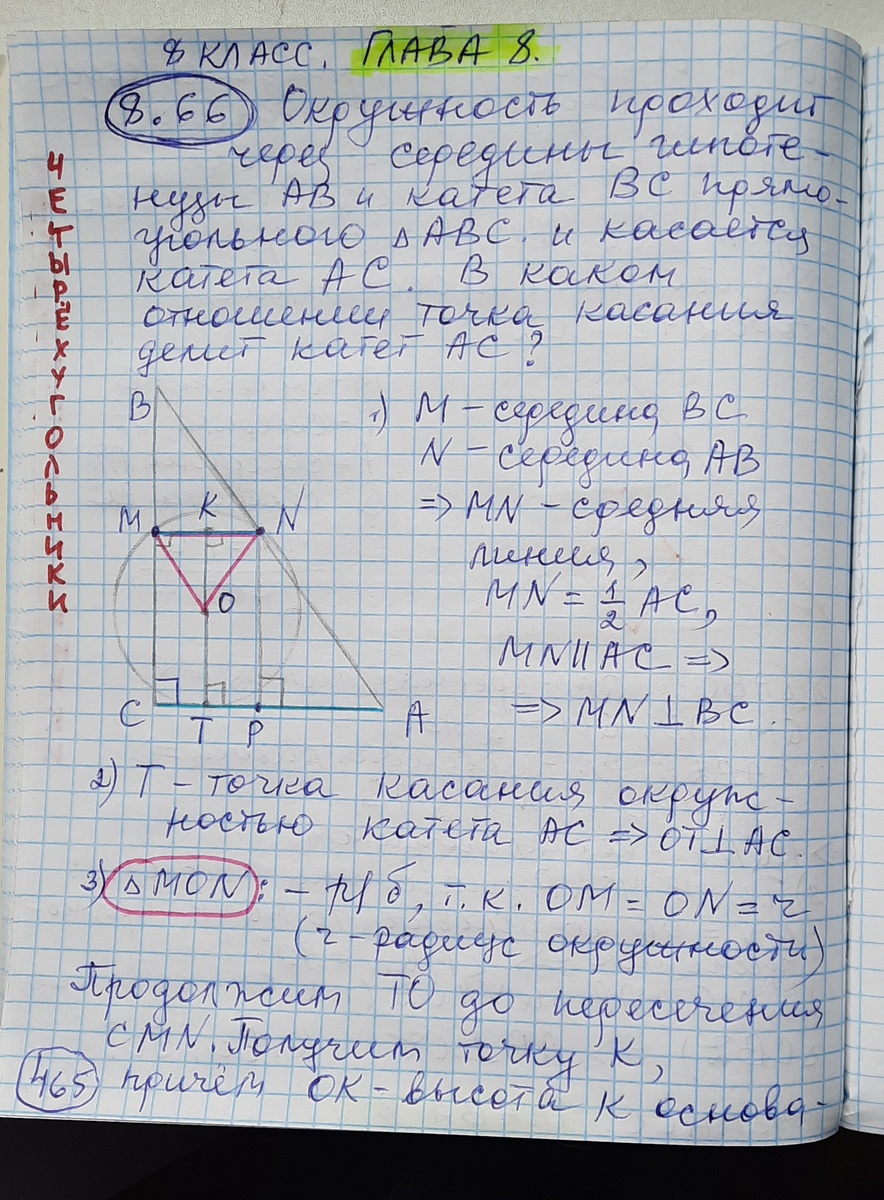 8 КЛАСС. ГЛАВА 8.
8.66 Окружность проходит
через середины гипоте-
нузы АВ и катета ВС прямо-
угольного △АВС. и касается
катета АС. В каком
отношении точка касания
делит катет АС?
ЧЕТЫРЁХУГОЛЬНИКИ
B
M K N
O
C T P A
1) M – середина BC
N – середина AB
=> MN – средняя
линия,
MN = 1/2 AC,
MN||AC =>
=> MN⊥BC.
2) T – точка касания окруж-
ностью катета AC => OT⊥AC.
3) △MON: – р/б, т.к. OM = ON = r
(r – радиус окружности)
Продолжим TO до пересечения
с MN. Получим точку K,
465 причём OK – высота к основа-